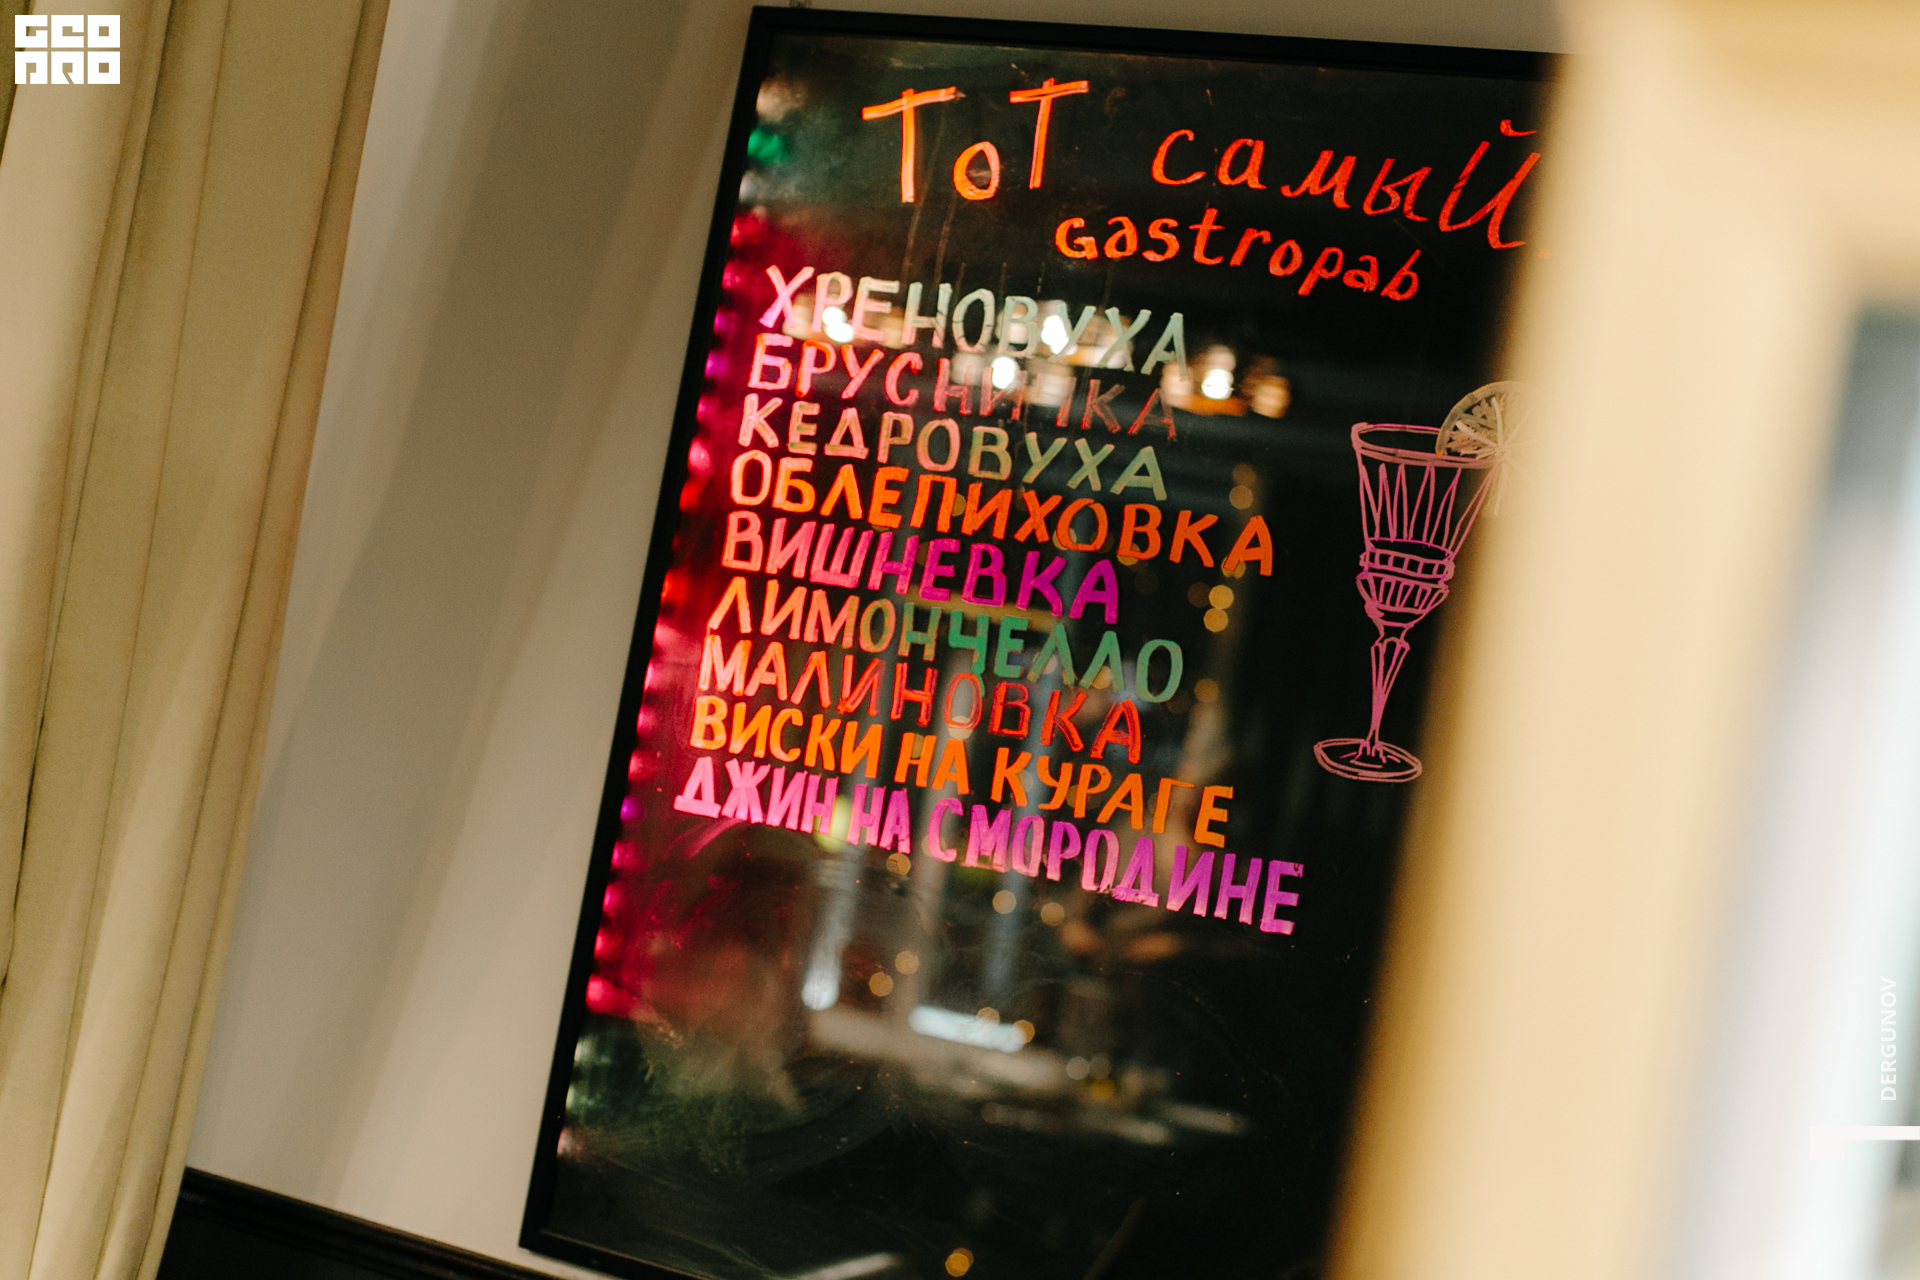 GEO
PRO
ТоТ самый
Gastropab
ХРЕНОВУХА
БРУСНИЧКА
КЕДРОВУХА
ОБЛЕПИХОВКА
ВИШНЕВКА
ЛИМОНЧЕЛЛО
МАЛИНОВКА
ВИСКИ НА КУРАГЕ
ДЖИН НА СМОРОДИНЕ
DERGUNOV